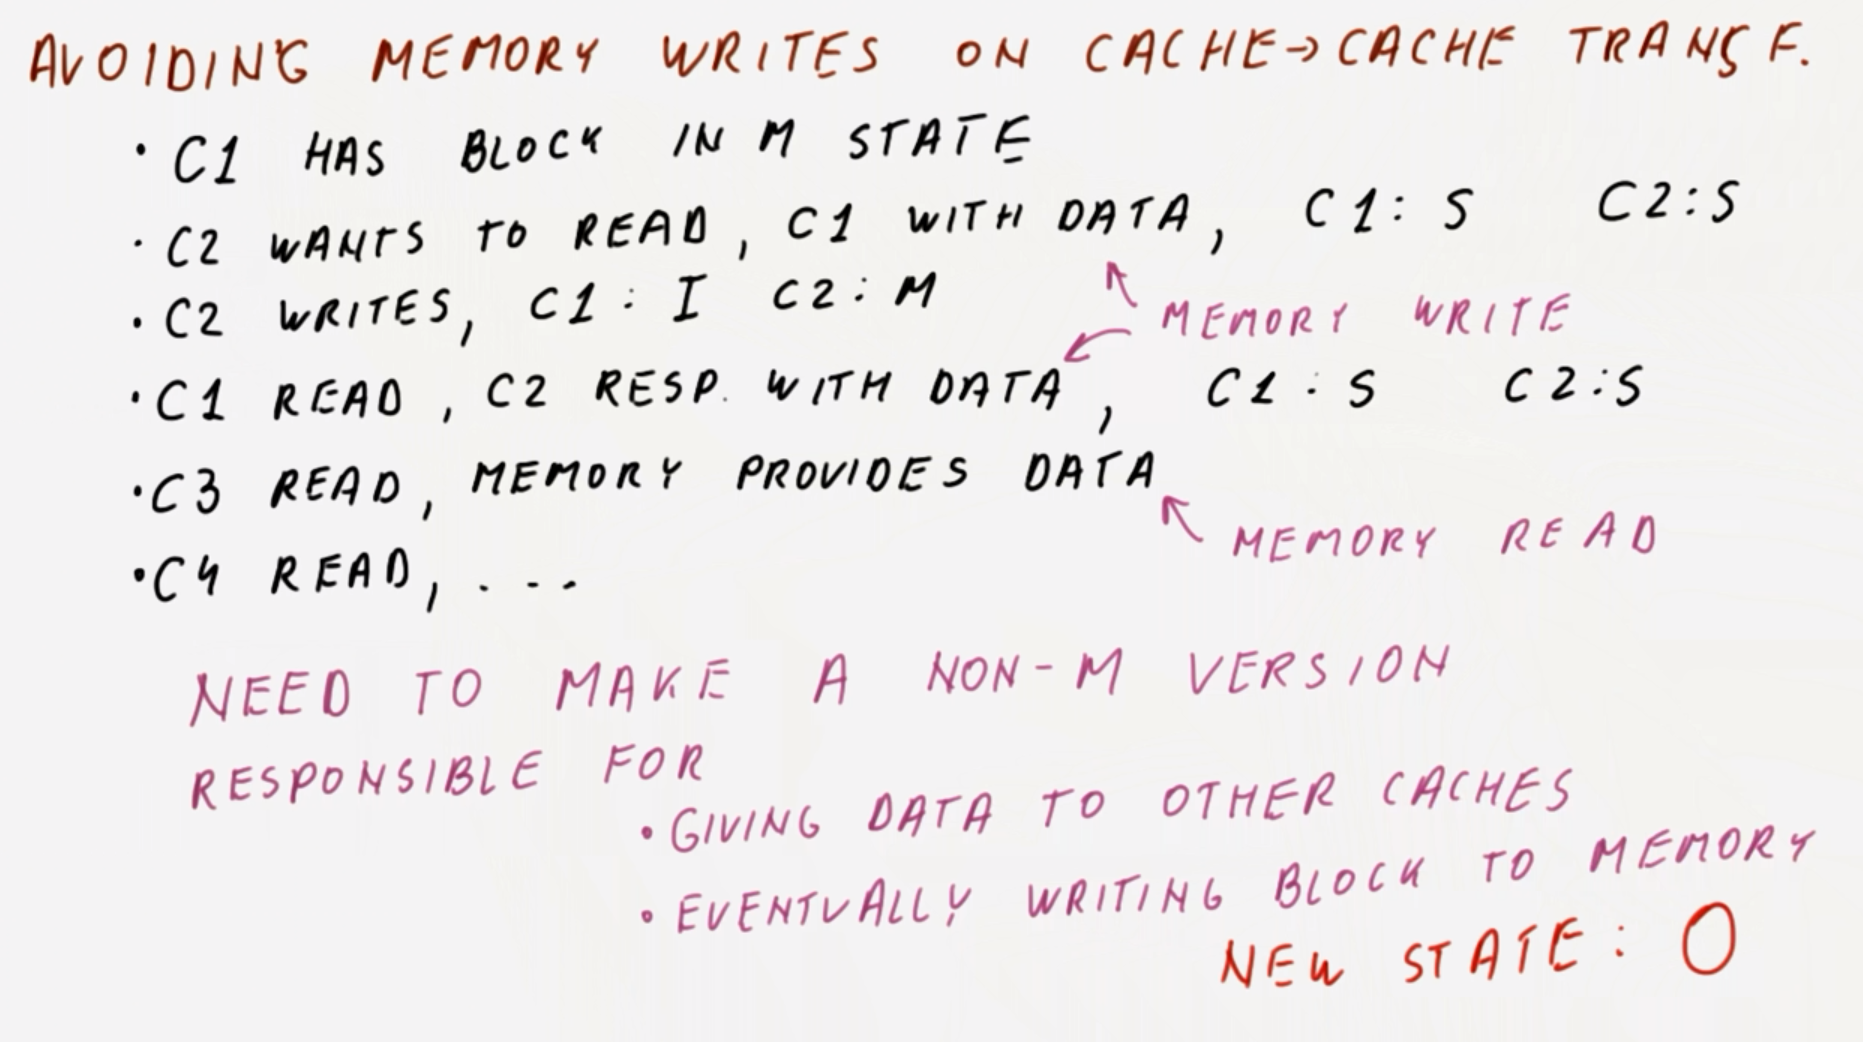 AVOIDING MEMORY WRITES ON CACHE→CACHE TRANSF.
• C1 HAS BLOCK IN M STATE
• C2 WANTS TO READ, C1 WITH DATA, C1: S C2:S
• C2 WRITES, C1: I C2: M
MEMORY WRITE
• C1 READ, C2 RESP. WITH DATA, C1: S C2:S
• C3 READ, MEMORY PROVIDES DATA
MEMORY READ
• C4 READ, ...
NEED TO MAKE A NON-M VERSION
RESPONSIBLE FOR
• GIVING DATA TO OTHER CACHES
• EVENTUALLY WRITING BLOCK TO MEMORY
NEW STATE: O